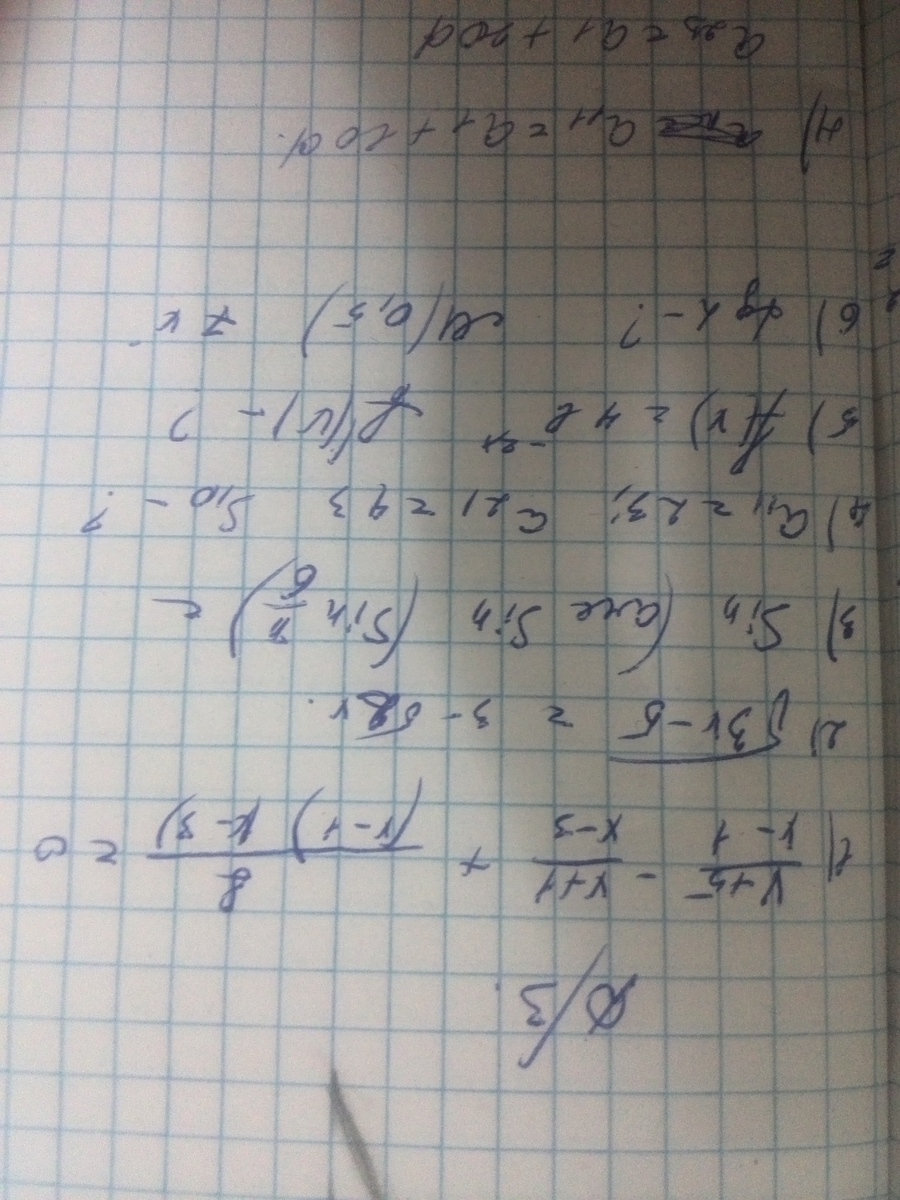 Д/З.
1) x+5/x-1 - x+1/x-3 + 8/(x-1)(x-3) = 0
2) √3x-5 = 3-5x.
3) Sin (arc Sin (Sin π/6) =
4) a11 = 23; a21 = 43 S10 - ?
5) f(x) = 4e^-3x f'(x) - ?
6) tg λ - ? M(0,5) 7x.
4) a11 = a1 + 10d.
a21 = a1 + 20d